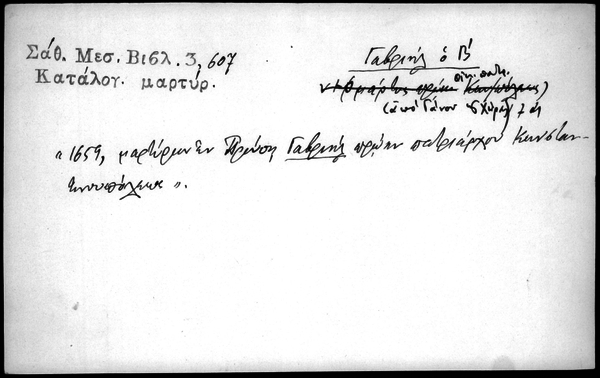 Σάθ. Μεσ. Βιβλ. 3, 607
Κατάλογ. μαρτύρ.
Γαβριήλ ὁ Β΄
οἰκ. πατρ.
(ἀπό Γάνου & Χώρας)
« 1659, μαρτύριον ἐν Προύσῃ Γαβριήλ πρώην πατριάρχου Κωνσταν-
τινουπόλεως ».